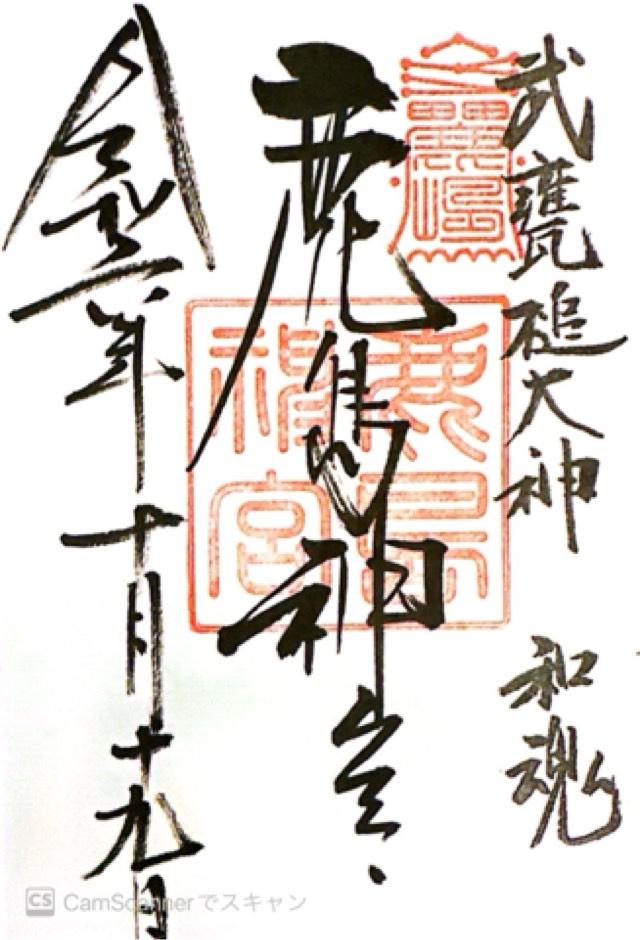 武甕槌大神 和魂
鹿島神宮
鹿島
神宮
令和二年十月十九日
CS CamScannerでスキャン